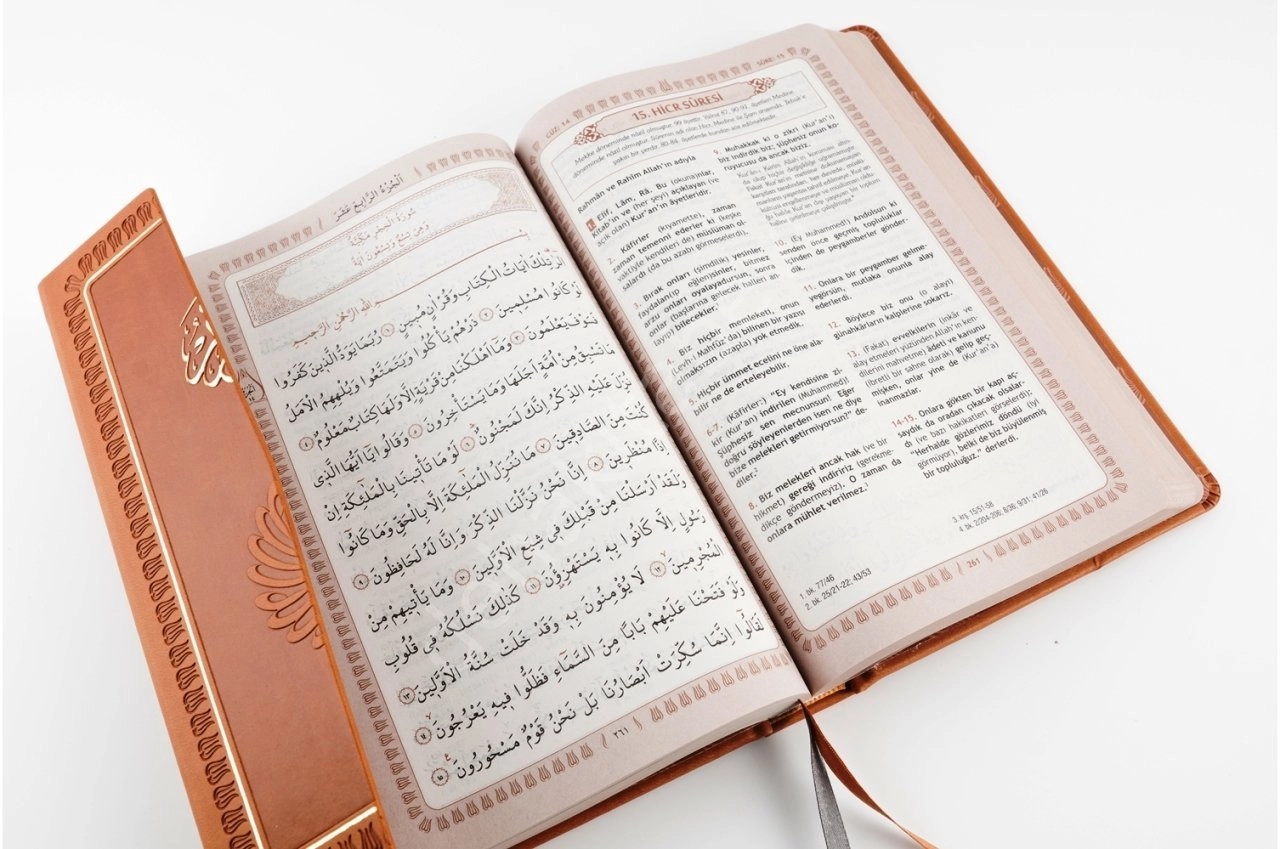 اَلْجُزْءُ الرَّابِعَ عَشَرَ
سُورَةُ الْحِجْرِ مَكِّيَّةٌ
وَهِيَ تِسْعٌ وَتِسْعُونَ اٰيَةً
بِسْمِ اللّٰهِ الرَّحْمٰنِ الرَّحِيمِ
الٓرٰ تِلْكَ اٰيَاتُ الْكِتَابِ وَقُرْاٰنٍ مُبِينٍ ﴿١﴾ رُبَمَا يَوَدُّ الَّذِينَ كَفَرُوا
لَوْ كَانُوا مُسْلِمِينَ ﴿٢﴾ ذَرْهُمْ يَأْكُلُوا وَيَتَمَتَّعُوا وَيُلْهِهِمُ الْاَمَلُ
فَسَوْفَ يَعْلَمُونَ ﴿٣﴾ وَمَٓا اَهْلَكْنَا مِنْ قَرْيَةٍ اِلَّا وَلَهَا كِتَابٌ مَعْلُومٌ ﴿٤﴾
مَا تَسْبِقُ مِنْ اُمَّةٍ اَجَلَهَا وَمَا يَسْتَأْخِرُونَ ﴿٥﴾ وَقَالُوا يَٓا اَيُّهَا الَّذِي
نُزِّلَ عَلَيْهِ الذِّكْرُ اِنَّكَ لَمَجْنُونٌ ﴿٦﴾ لَوْ مَا تَأْتِينَا بِالْمَلٰٓئِكَةِ اِنْ
كُنْتَ مِنَ الصَّادِقِينَ ﴿٧﴾ مَا نُنَزِّلُ الْمَلٰٓئِكَةَ اِلَّا بِالْحَقِّ وَمَا كَانُٓوا
اِذًا مُنْظَرِينَ ﴿٨﴾ اِنَّا نَحْنُ نَزَّلْنَا الذِّكْرَ وَاِنَّا لَهُ لَحَافِظُونَ ﴿٩﴾
وَلَقَدْ اَرْسَلْنَا مِنْ قَبْلِكَ فِي شِيَعِ الْاَوَّلِينَ ﴿١٠﴾ وَمَا يَأْتِيهِمْ مِنْ
رَسُولٍ اِلَّا كَانُوا بِهِ يَسْتَهْزِؤُنَ ﴿١١﴾ كَذٰلِكَ نَسْلُكُهُ فِي قُلُوبِ
الْمُجْرِمِينَ ﴿١٢﴾ لَا يُؤْمِنُونَ بِهِ وَقَدْ خَلَتْ سُنَّةُ الْاَوَّلِينَ ﴿١٣﴾
وَلَوْ فَتَحْنَا عَلَيْهِمْ بَابًا مِنَ السَّمَٓاءِ فَظَلُّوا فِيهِ يَعْرُجُونَ ﴿١٤﴾
لَقَالُٓوا اِنَّمَا سُكِّرَتْ اَبْصَارُنَا بَلْ نَحْنُ قَوْمٌ مَسْحُورُونَ ﴿١٥﴾
٢٦١
CÜZ: 14
SÛRE: 15
15. HİCR SÛRESİ
Mekke döneminde nâzil olmuştur. 99 âyettir. Yalnız 87, 90-91. âyetleri Medine
döneminde nâzil olmuştur. Sûrenin adı olan Hicr, Medine ile Şam arasında, Tebük'e
yakın bir yerdir. 80-84. âyetlerde bundan söz edilmektedir.
Rahmân ve Rahîm Allah'ın adıyla
1. Elif, Lâm, Râ. Bu (okuna)nlar,
kitab'ın ve (her şeyi) açıklayan (ve
açık olan) Kur'an'ın âyetleridir.
2. Kâfirler (kıyamette), zaman
zaman temenni ederler ki (keşke
vaktiyle kendileri de) müslüman ol-
salardı (da bu azabı görmeselerdi).
3. Bırak onları (şimdilik) yesinler,
faydalan(ıp eğlen)sinler, bitmez
arzu onları oyalayadursun, sonra
onlar (başlarına gelecek halleri an-
layı)p bilecekler.
4. Biz hiçbir memleketi, onun
(Levh-i Mahfûz'da) bilinen bir yazısı
olmaksızın (azapla) yok etmedik.
5. Hiçbir ümmet ecelini ne öne ala-
bilir ne de erteleyebilir.
6-7. (Kâfirler:) "Ey kendisine zi-
kir (Kur'an) indirilen (Muhammed)!
Şüphesiz sen mecnunsun! Eğer
doğru söyleyenlerden isen ne diye
bize melekleri getirmiyorsun?" de-
diler.
8. Biz melekleri ancak hak (ve bir
hikmet) gereği indiririz (gerekme-
dikçe göndermeyiz). O zaman da
onlara mühlet verilmez.
1. bk. 77/46
2. bk. 25/21-22; 43/53
9. Muhakkak ki o zikri (Kur'an'ı)
biz indirdik biz; şüphesiz onun ko-
ruyucusu da ancak biziz.
Kur'ân-ı Kerim Allah'ın koruması altın-
da olup hiçbir değişikliğe uğramamıştır.
10. (Ey Muhammed!) Andolsun ki
senden önce geçmiş topluluklar
içinden de peygamberler gönder-
dik.
11. Onlara bir peygamber gelme-
yegörsün, mutlaka onunla alay
ederlerdi.
12. Böylece biz onu (o alayı)
günahkârların kalplerine sokarız.
13. (Fakat) evvelkilerin (inkâr ve
alay etmeleri yüzünden Allah'ın ken-
dilerini mahvetme) âdeti ve kanunu
(ibretli bir sahne olarak) gelip geç-
mişken, onlar yine de (Kur'an'a)
inanmazlar.
14-15. Onlara gökten bir kapı aç-
saydık da oradan çıkacak olsalar-
dı (ve bazı hakikatleri görselerdi);
"Herhalde gözlerimiz döndü (iyi
görmüyor), belki de biz büyülenmiş
bir topluluğuz." derlerdi.
3. krş. 15/51-58
4. bk. 2/204-206; 8/38; 9/31; 41/26
261